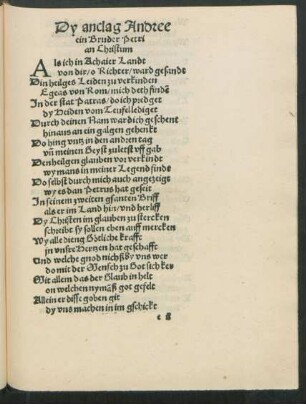 Dy anclag Andree
ein Bruder Petri
an Christum
Als ich in Achaier Landt
von dir / o Richter / ward gesandt
Din heilges Leiden zu verkinden
Egeas von Rom / mich deth findē
In der stat Patras / do ich predget
dy Heiden vom Teufel lediget
Durch deinen Nam ward ich geschent
hinans an ein galgen gehenkt
Do hing vntz in den andren tag
vn̄ meinen Geyst zu letst vff gab
Den heilgen glauben vor verkindt
wy mans in meiner Legend findt
Do selbst durch mich auch angezeigt
wy es dan Petrus hat geseit
In seinem zweiten gsanten Briff
als er im Land hin / vnd her liff
Dy Christen im glauben zu stercken
schreibt sy sollen eben auff mercken
Wy alle dieng Götliche krafft
in vnsre Hertzen hat geschafft
Und welche gnod
do mit der Mensch zu Got sich ker
Mit allem das der Glaub in helt
on welchen nymāß got gefelt
Allein er disse goben git
dy vns machen in im gschickt